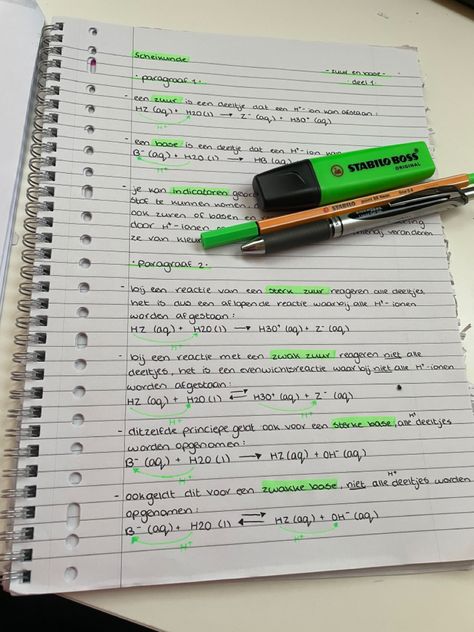 Scheikunde
- zuur en base -
· paragraaf 1 ·
deel 1
- een zuur is een deeltje dat een H⁺-ion kan afstaan:
HZ (aq) + H2O (l) → Z⁻ (aq) + H3O⁺ (aq)
H⁺
- een base is een deeltje dat een H⁺-ion kan
B⁻ (aq) + H2O (l) → HB (aq)
- je kan indicatoren
STABILO BOSS
ORIGINAL
stof te kunnen
ook zuren of basen en
door H⁺-ionen
veranderen
ze van
· paragraaf 2 ·
- bij een reactie van een sterk zuur reageren alle deeltjes
het is dus een aflopende reactie waarbij alle H⁺-ionen
worden afgestaan:
HZ (aq) + H2O (l) → H3O⁺ (aq) + Z⁻ (aq)
H⁺
- bij een reactie met een zwak zuur reageren niet alle
deeltjes, het is een evenwichtsreactie waarbij niet alle H⁺-ionen
worden afgestaan:
HZ (aq) + H2O (l) ⇄ H3O⁺ (aq) + Z⁻ (aq)
H⁺ H⁺
- ditzelfde principe geldt ook voor een sterke base, alle H⁺ deeltjes
worden opgenomen:
B⁻ (aq) + H2O (l) → HZ (aq) + OH⁻ (aq)
H⁺
- ook geldt dit voor een zwakke base, niet alle H⁺ deeltjes worden
opgenomen:
B⁻ (aq) + H2O (l) ⇄ HZ (aq) + OH⁻ (aq)
H⁺ H⁺